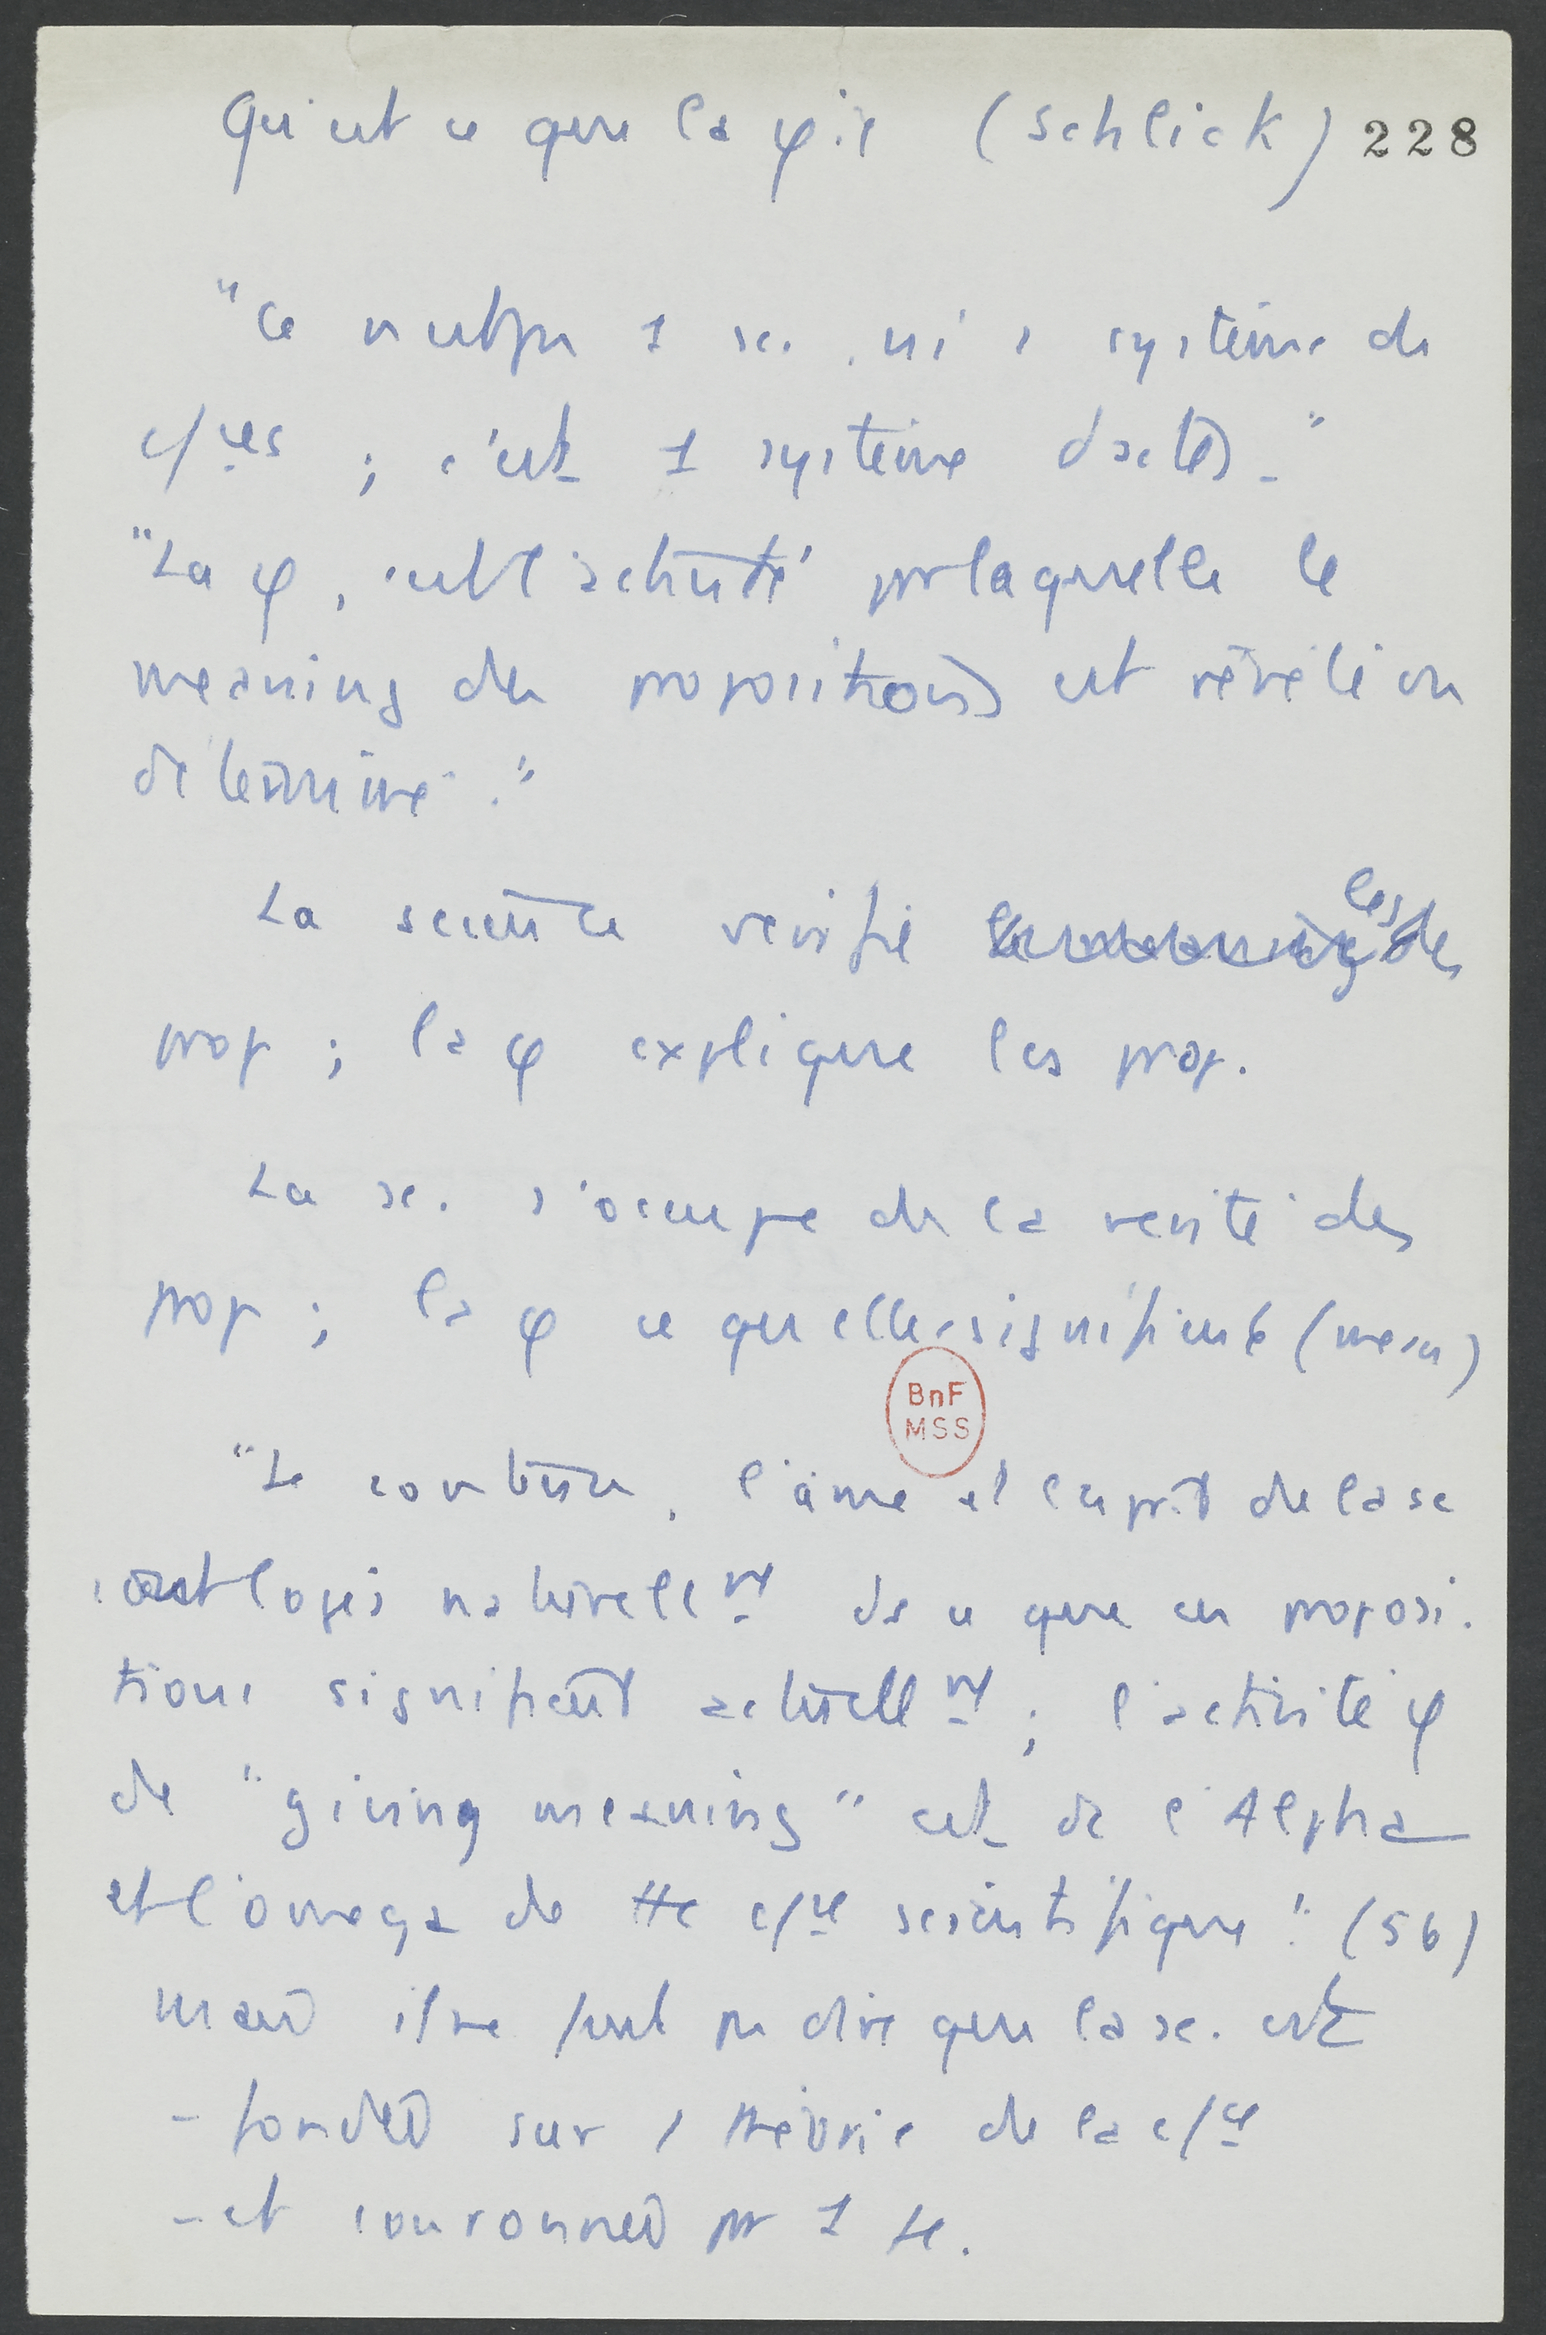 Qu'est ce que la φ.ie (Schlick) 228
"Ce n'est pas 1 sc. ni 1 système de
c/ces ; c'est 1 système d'actes."
"La φ, c'est l'activité par laquelle le
meaning des propositions est révélé ou
déterminé."
La science vérifie le meaning des les
prop ; la φ explique les prop.
La sc. s'occupe de la vérité des
prop ; la φ ce qu'elles signifient (mean)
BnF
MSS
"Le contenu, l'âme et l'esprit de la sc
sont logés naturellemt ds ce que ces proposi.
tions signifient actuellemt ; l'activité φ
de "giving meaning" est dc l'Alpha
et l'omega de tte c/ce scientifique". (56)
mais il ne faut pas dire que la sc. est
- fondée sur 1 théorie de la c/ce
- et couronnée par 1 te.